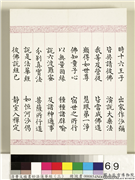 時十六王子 出家作沙彌
皆共請彼佛 演說大乘法
我等及營從 皆當成佛道
願得如世尊 慧眼第一淨
佛知童子心 宿世之所行
以無量因緣 種種諸譬喻
說六波羅蜜 及諸神通事
分別真實法 菩薩所行道
說是法華經 如恒河沙偈
彼佛說經已 靜室入禪定
69